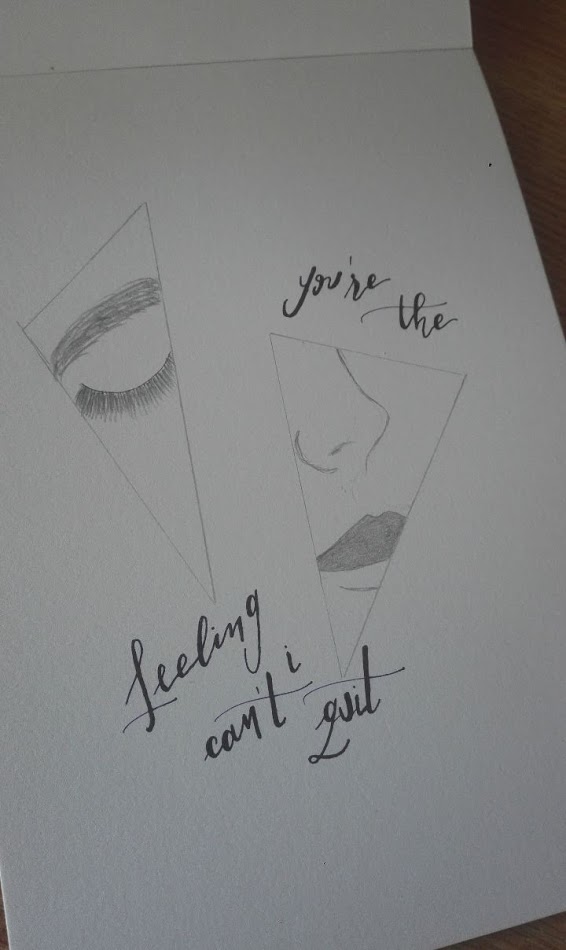 you're
the
feeling
i
can't quit